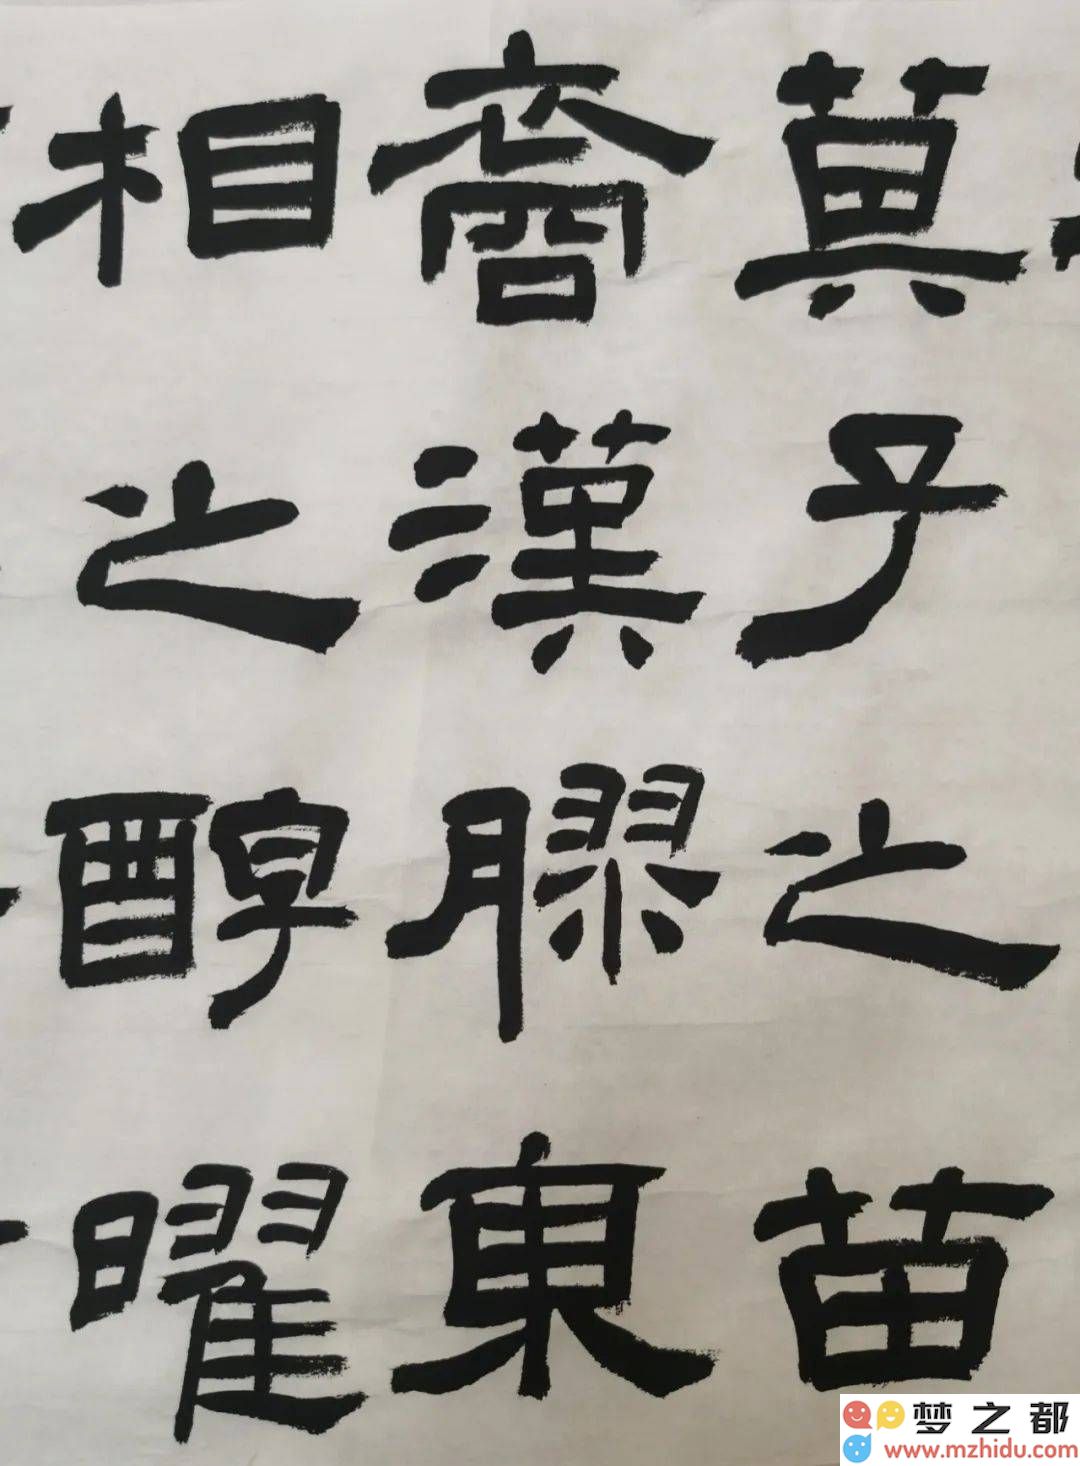 箕子之苗
裔漢膠東
相之醇曜
梦之都
www.mzhidu.com